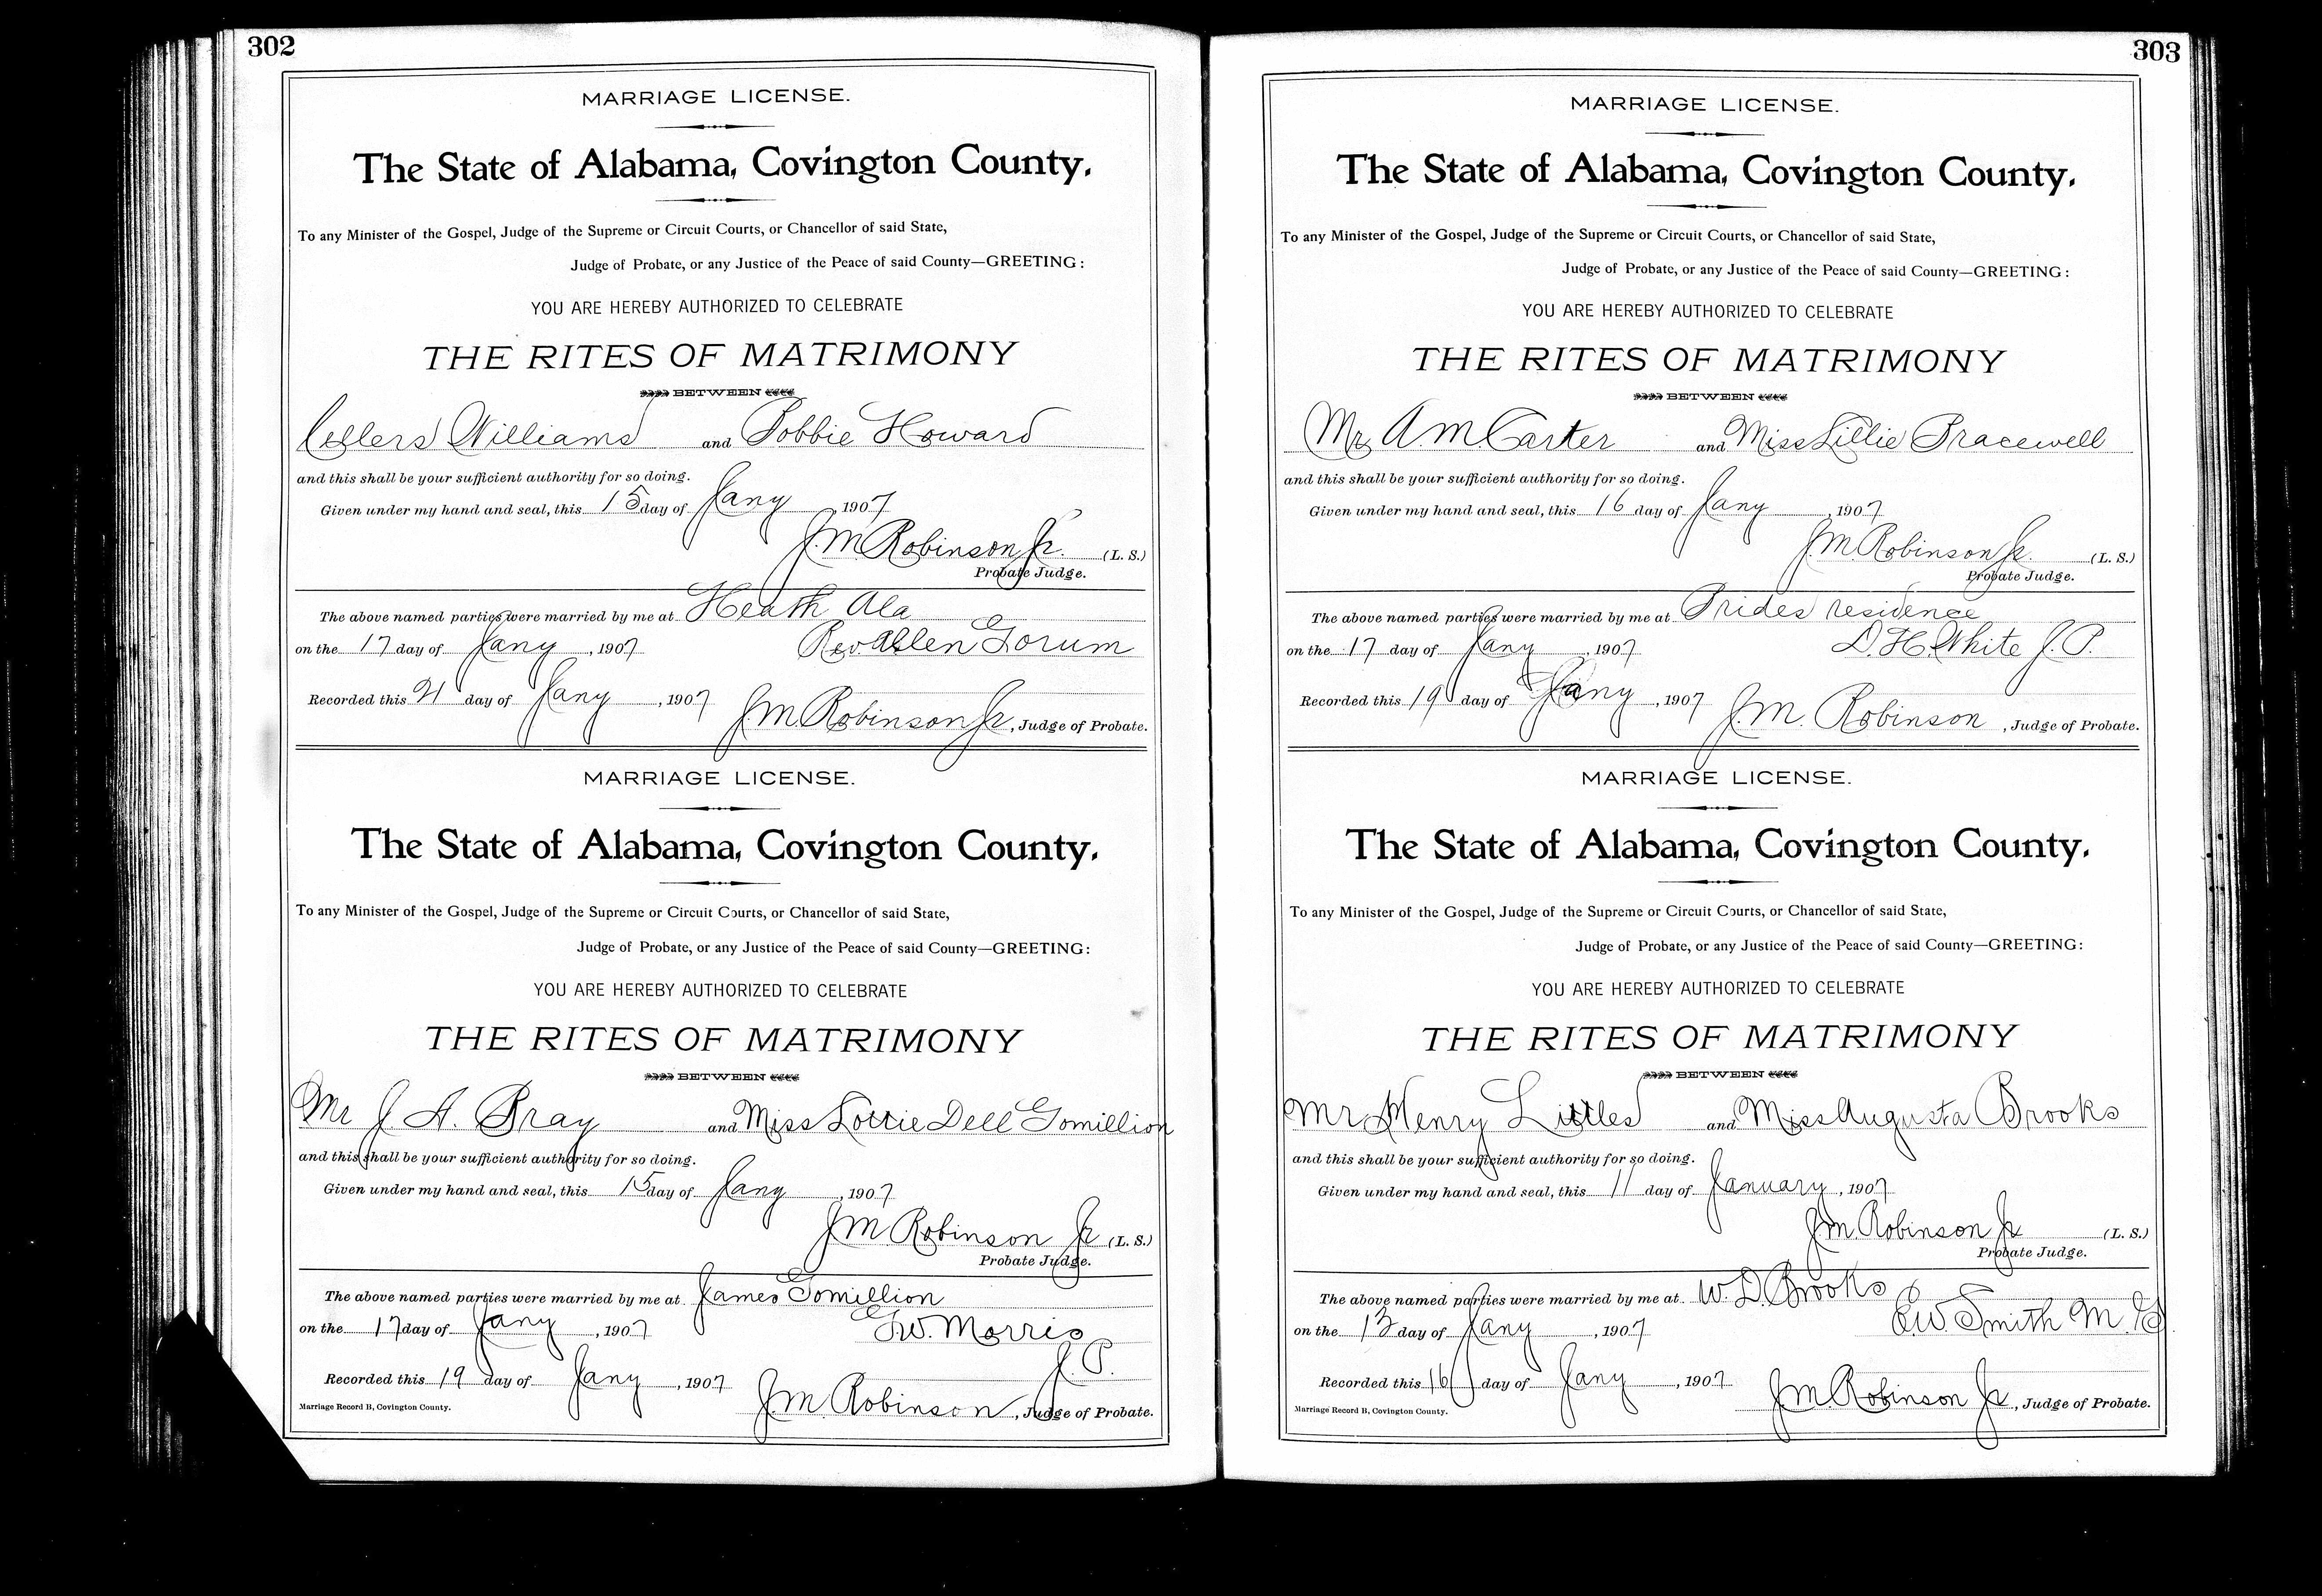 302
MARRIAGE LICENSE.
The State of Alabama, Covington County.
To any Minister of the Gospel, Judge of the Supreme or Circuit Courts, or Chancellor of said State,
Judge of Probate, or any Justice of the Peace of said County—GREETING:
YOU ARE HEREBY AUTHORIZED TO CELEBRATE
THE RITES OF MATRIMONY
BETWEEN
Williams and Bobbie Howard
and this shall be your sufficient authority for so doing.
Given under my hand and seal, this 15 day of Jany, 1907
J.M. Robinson Jr. (L. S.)
Probate Judge.
The above named parties were married by me at Heath Ala
on the 17 day of Jany, 1907 Rev. Allen Gorum
Recorded this 21 day of Jany, 1907 J.M. Robinson Jr, Judge of Probate.
MARRIAGE LICENSE.
The State of Alabama, Covington County.
To any Minister of the Gospel, Judge of the Supreme or Circuit Courts, or Chancellor of said State,
Judge of Probate, or any Justice of the Peace of said County—GREETING:
YOU ARE HEREBY AUTHORIZED TO CELEBRATE
THE RITES OF MATRIMONY
BETWEEN
Mr J. A. Bray and Miss Lottie Dell Gomillion
and this shall be your sufficient authority for so doing.
Given under my hand and seal, this 15 day of Jany, 1907
J M Robinson Jr (L. S.)
Probate Judge.
The above named parties were married by me at James Gomillion
on the 17 day of Jany, 1907 G.W. Morris
J. P.
Recorded this 19 day of Jany, 1907 J.M. Robinson, Judge of Probate.
Marriage Record B, Covington County.
303
MARRIAGE LICENSE.
The State of Alabama, Covington County.
To any Minister of the Gospel, Judge of the Supreme or Circuit Courts, or Chancellor of said State,
Judge of Probate, or any Justice of the Peace of said County—GREETING:
YOU ARE HEREBY AUTHORIZED TO CELEBRATE
THE RITES OF MATRIMONY
BETWEEN
Mr A M Carter and Miss Lillie Bracewell
and this shall be your sufficient authority for so doing.
Given under my hand and seal, this 16 day of Jany, 1907
J.M. Robinson Jr. (L. S.)
Probate Judge.
The above named parties were married by me at Brides residence
on the 17 day of Jany, 1907 D. H. White J. P.
Recorded this 19 day of Jany, 1907 J. M. Robinson, Judge of Probate.
MARRIAGE LICENSE.
The State of Alabama, Covington County.
To any Minister of the Gospel, Judge of the Supreme or Circuit Courts, or Chancellor of said State,
Judge of Probate, or any Justice of the Peace of said County—GREETING:
YOU ARE HEREBY AUTHORIZED TO CELEBRATE
THE RITES OF MATRIMONY
BETWEEN
Mr Henry Littles and Miss Augusta Brooks
and this shall be your sufficient authority for so doing.
Given under my hand and seal, this 11 day of January, 1907
J.M. Robinson Jr (L. S.)
Probate Judge.
The above named parties were married by me at W. D. Brooks
on the 13 day of Jany, 1907 Smith M. G
Recorded this 16 day of Jany, 1907 J.M. Robinson Jr, Judge of Probate.
Marriage Record B, Covington County.